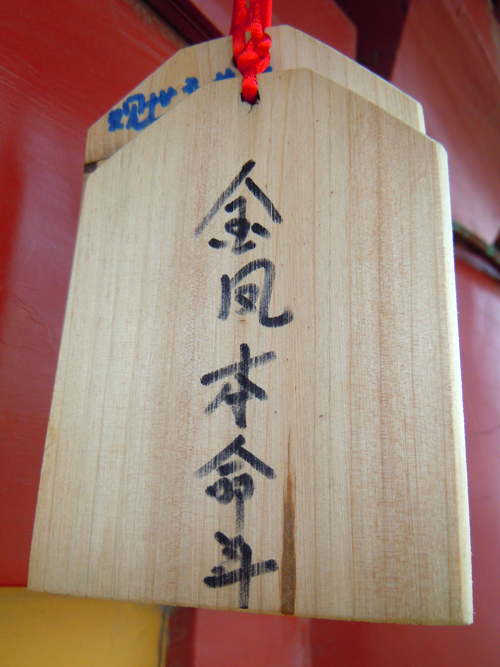 金凤本命斗